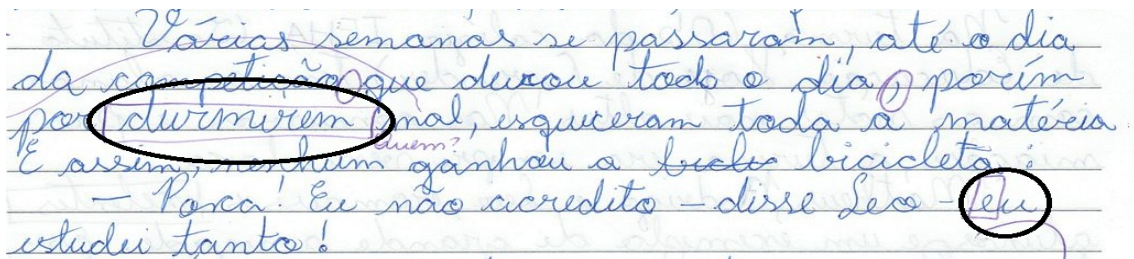 Várias semanas se passaram, até o dia
da competição que durou todo o dia, porím
por durmirem mal, esquiceram toda a matéria
quem?
E assim, nenhum ganhou a bicicleta:
— Porca! Eu não acredito – disse Leo – eu
estudei tanto!